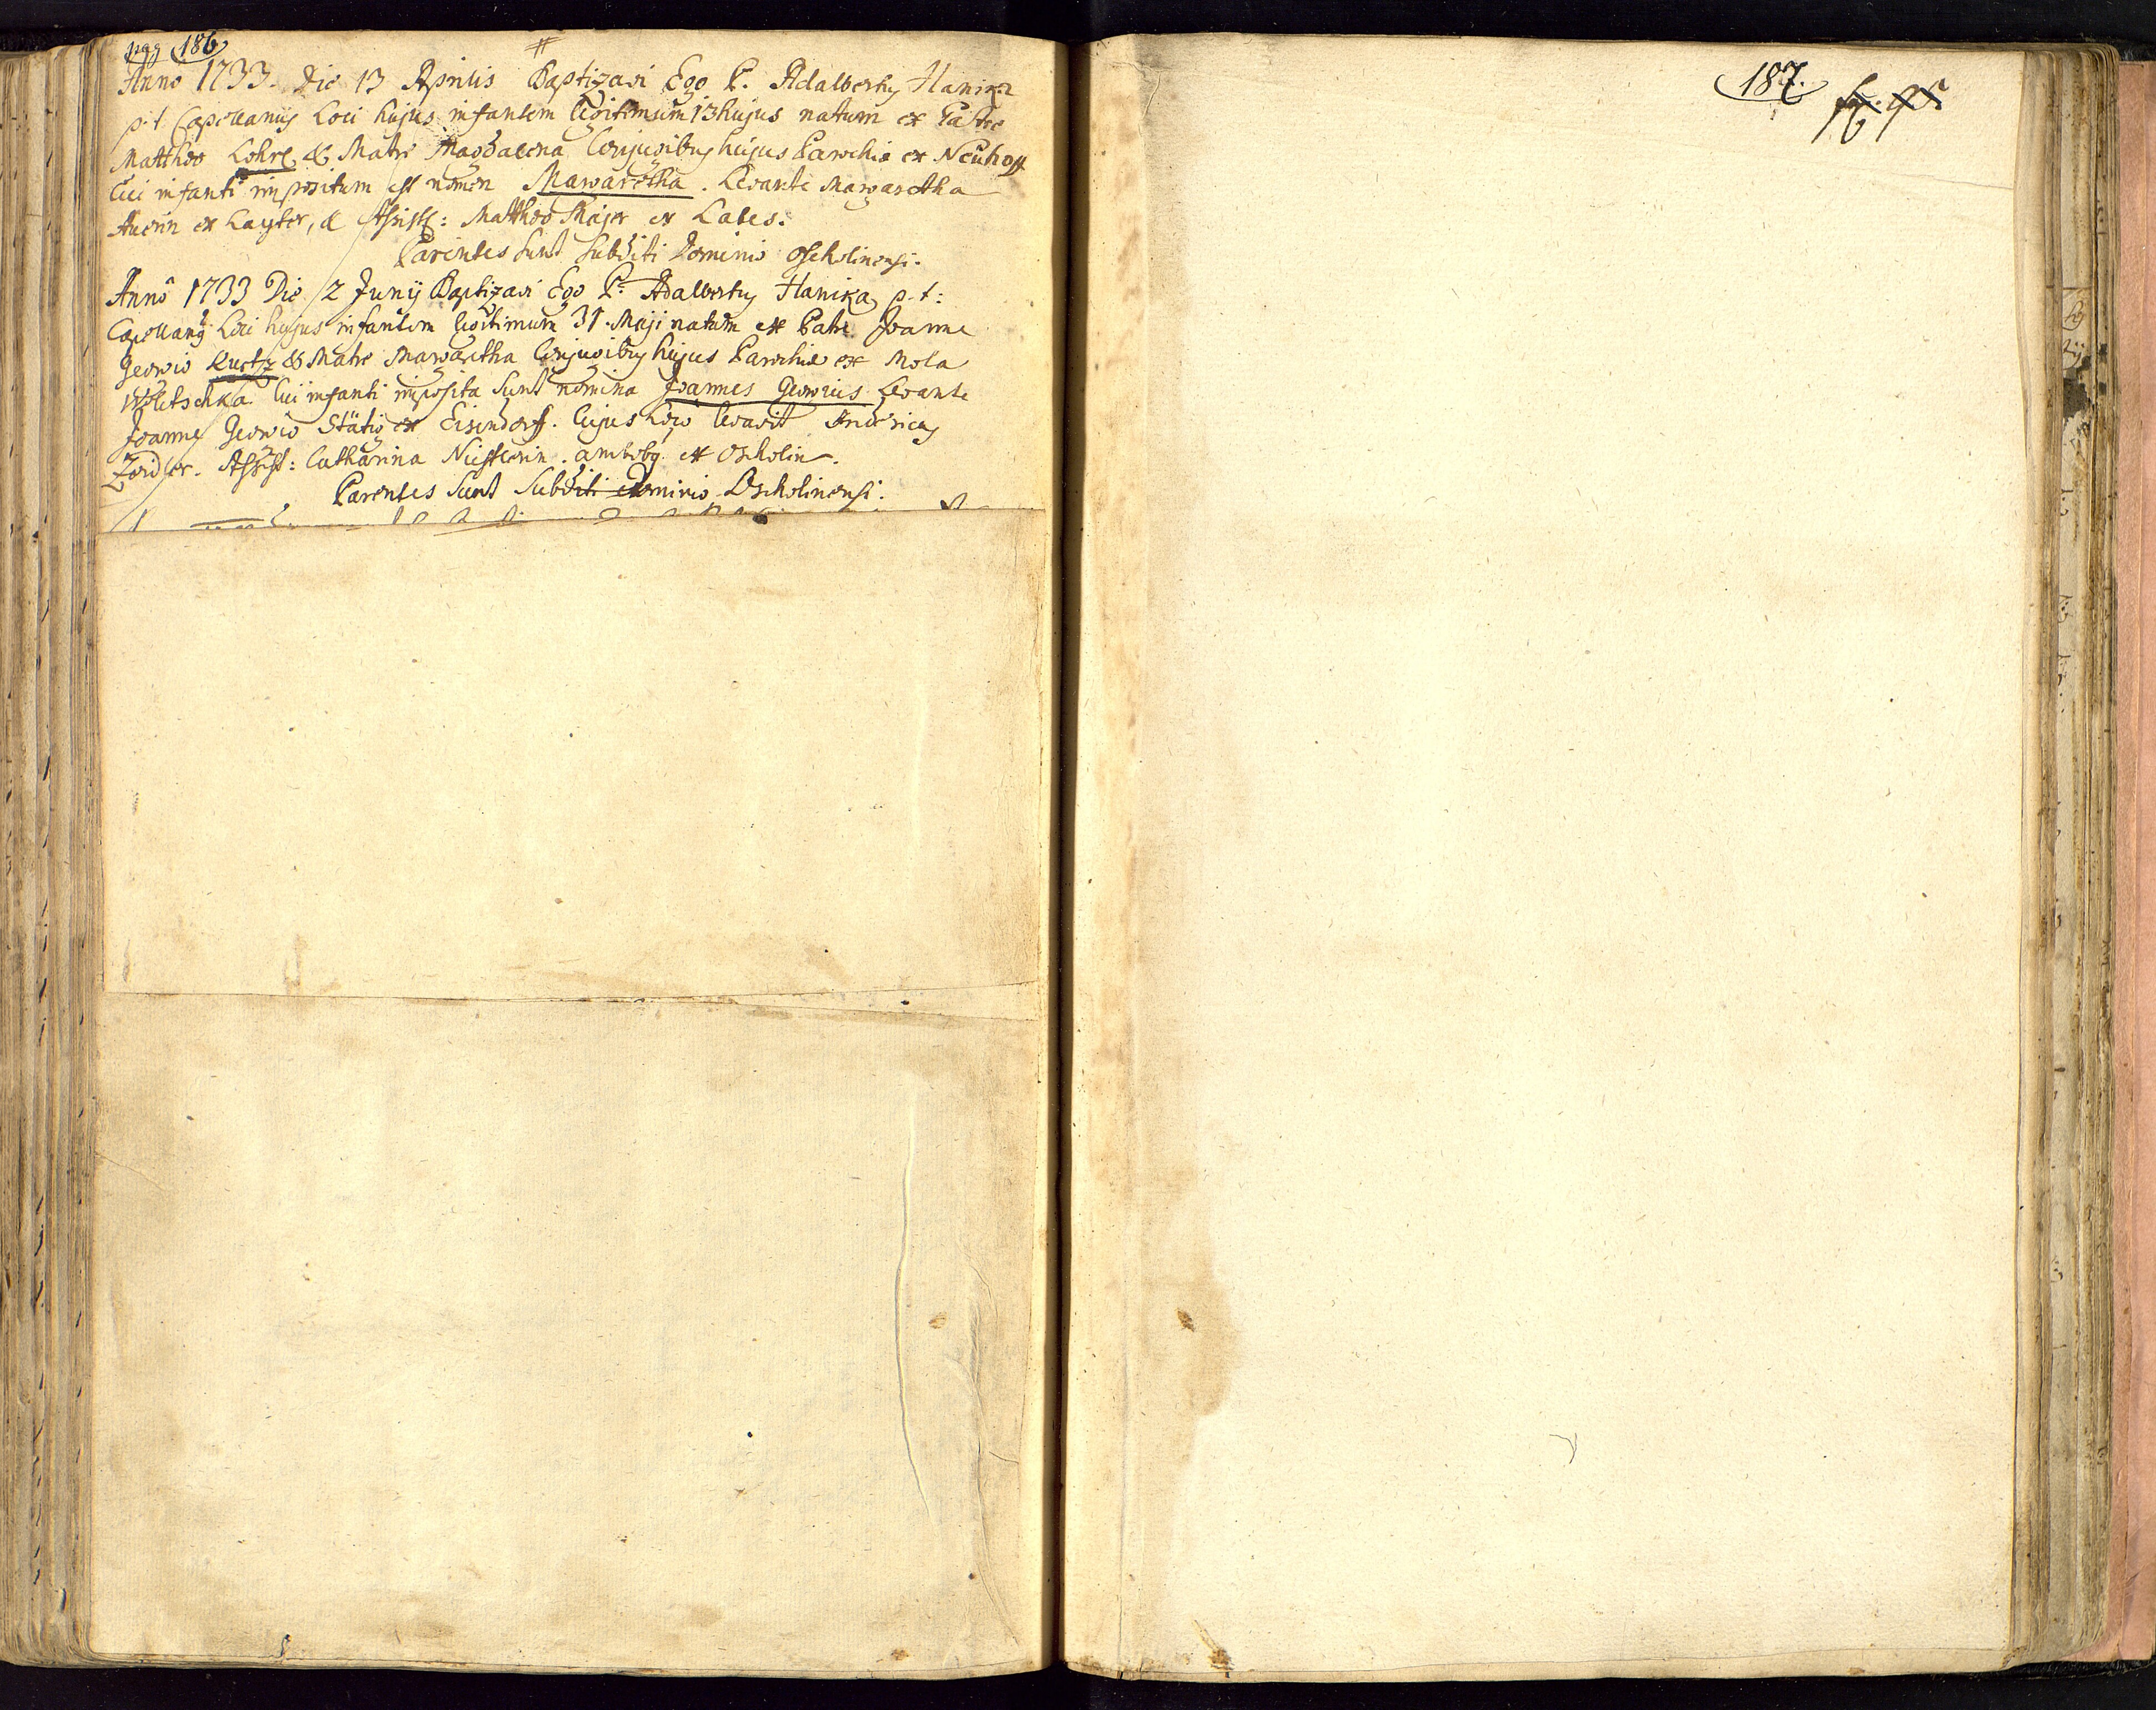 pag 186
Anno 1733. Die 13 Aprilis Baptizavi Ego P. Adalbertus Hanika
p.t. Capellanus Loci hujus infantem legitimum 13 hujus natum ex Patre
Matthaeo Lohrl & Matre Magdalena Conjugibus hujus Parochiae ex Neuhoff
Cui infanti impositum est nomen Margaretha. Levante Margaretha
ex , & Assist: Matthaeo Majer ex
Parentes sunt subditi Dominio Oscholinensi.
Anno 1733 Die 2 Junij Baptizavi Ego P. Adalbertus Hanika p.t:
Capellang Loci hujus infantem legitimum 31. Maji natum ex Patre Joanne
Georgio Kurtz & Matre Margaretha Conjugibus hujus Parochiae ex Mola
Cui infanti imposita sunt nomina Joannes Georgius. Levante
Joanne Georgio Stätig ex Eisendorf. Cujus loco levavit
Zeidler. Assist: Catharina ambobg. ex Oscholin.
Parentes sunt subditi Dominio Oscholinensi.
187.